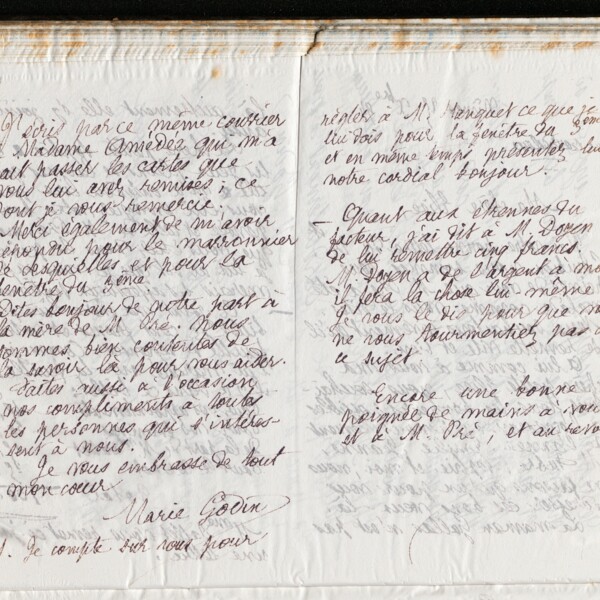 J'écris par ce même courrier
à Madame Amédée qui m'a
fait passer les cartes que
vous lui avez remises ; ce
dont je vous remercie.
Merci également de m'avoir
répondu pour le marronnier
de Lesquielles et pour la
fenêtre du 2ème
Dites bonjour de notre part à
la mère de M. Pré. Nous
sommes bien contentes de
la savoir là pour vous aider.
Faites aussi à l'occasion
nos compliments à toutes
les personnes qui s'intéres-
sent à nous.
Je vous embrasse de tout
mon cœur
Marie Godin
Je compte sur vous pour
régler à M. Hanquet ce que je
lui dois pour la fenêtre du 2ème
et en même temps présentez lui
notre cordial bonjour.
— Quant aux étrennes du
facteur, j'ai dit à M. Doyen
de lui remettre cinq francs.
M. Doyen a de l'argent à moi
il fera la chose lui même
Je vous le dis pour que vous
ne vous tourmentiez pas à
ce sujet
Encore une bonne
poignée de mains à vous
et à M. Pré, et au revoir